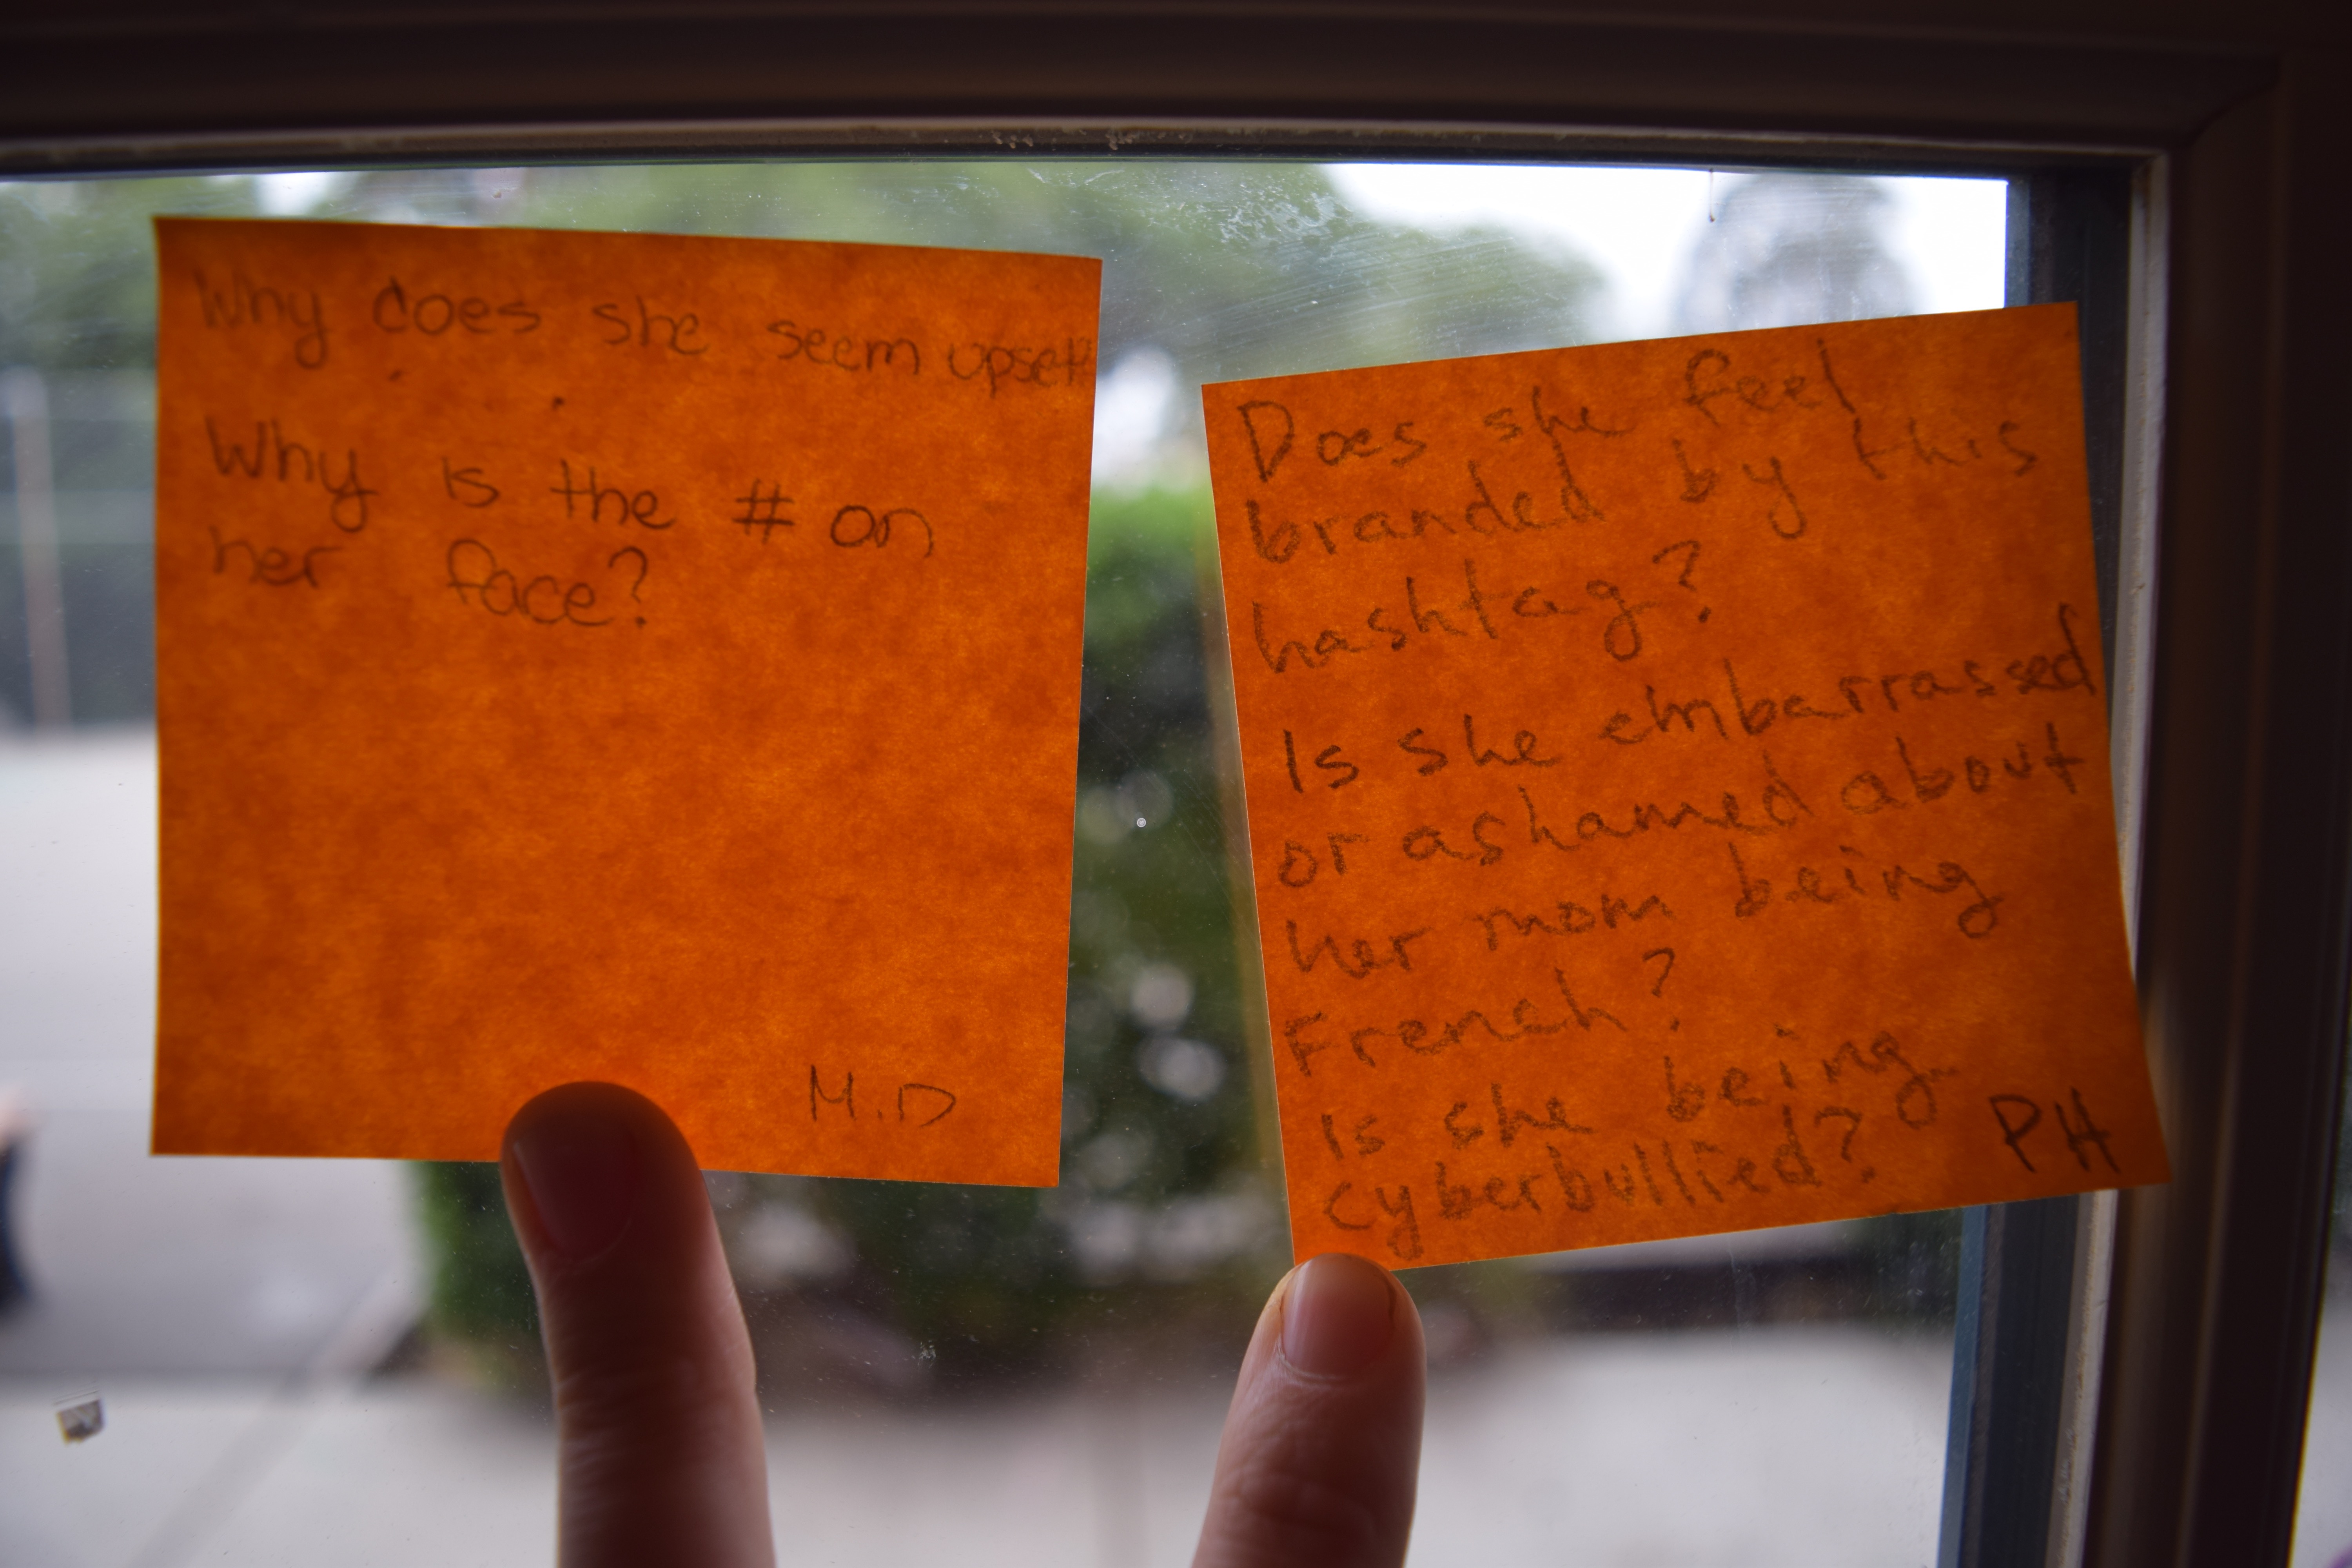 Why does she seem upset?
Why is the # on
her face?
M.D
Does she feel
branded by this
hashtag?
Is she embarrassed
or ashamed about
her mom being
French?
Is she being
cyberbullied?
PH